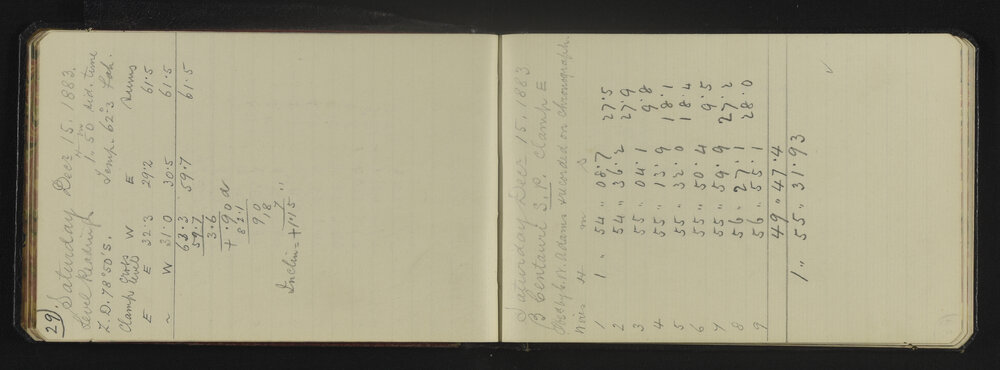 29.
Saturday Decr 15. 1883.
Level Readings 1h 50m sid. time
Z.D. 78° 50' S. Temp. 62°.3 Fah.
Clamp Level W E Sums
E E 32.3 29.2 61.5
~ W 31.0 30.5 61.5
63.3 59.7 61.5
59.7
3.6
+.90 d
Inclin = +1".15
Saturday Decr 15, 1883
β Centauri S.P. Clamp E
Obsd by C.W. Adams recorded on chronograph.
Wires H m s
1 1 " 54 " 08.7 27.5
2 54 " 36.2 27.9
3 55 " 04.1 9.8
4 55 " 13.9 18.1
5 55 " 32.0 18.4
6 55 " 50.4 9.5
7 55 " 59.9 27.2
8 56 " 27.1 28.0
9 56 " 55.1
49 " 47.4
1 " 55 " 31.93